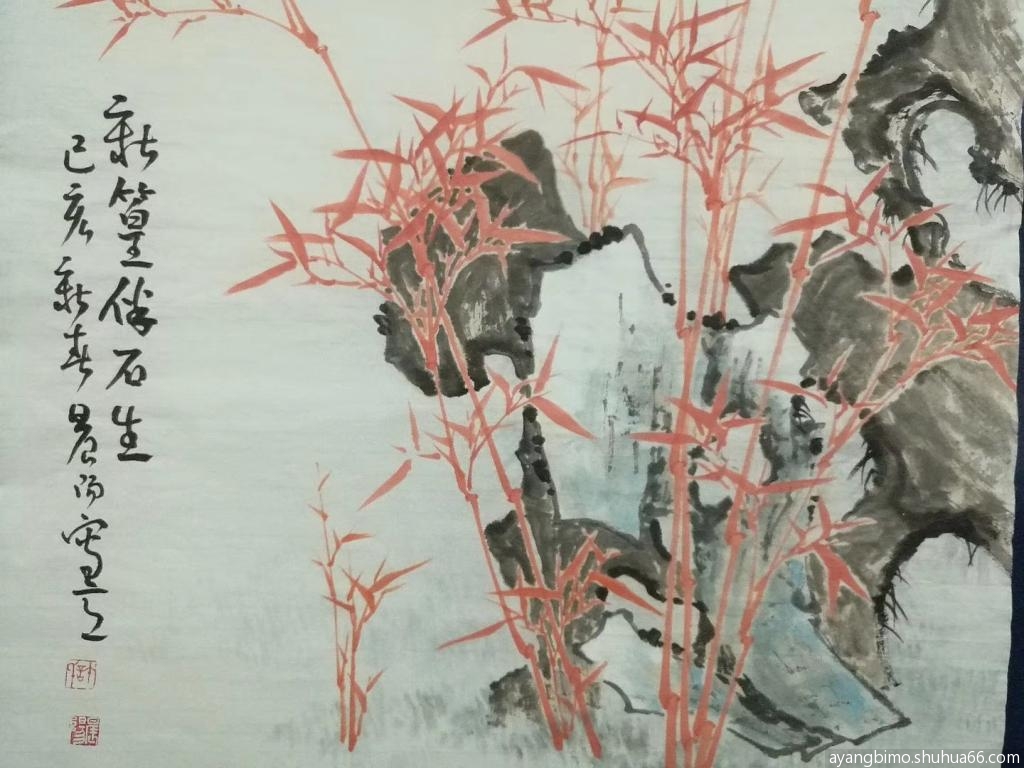 新篁伴石生
己亥新春晨阳写意
ayangbimo.shuhua66.com